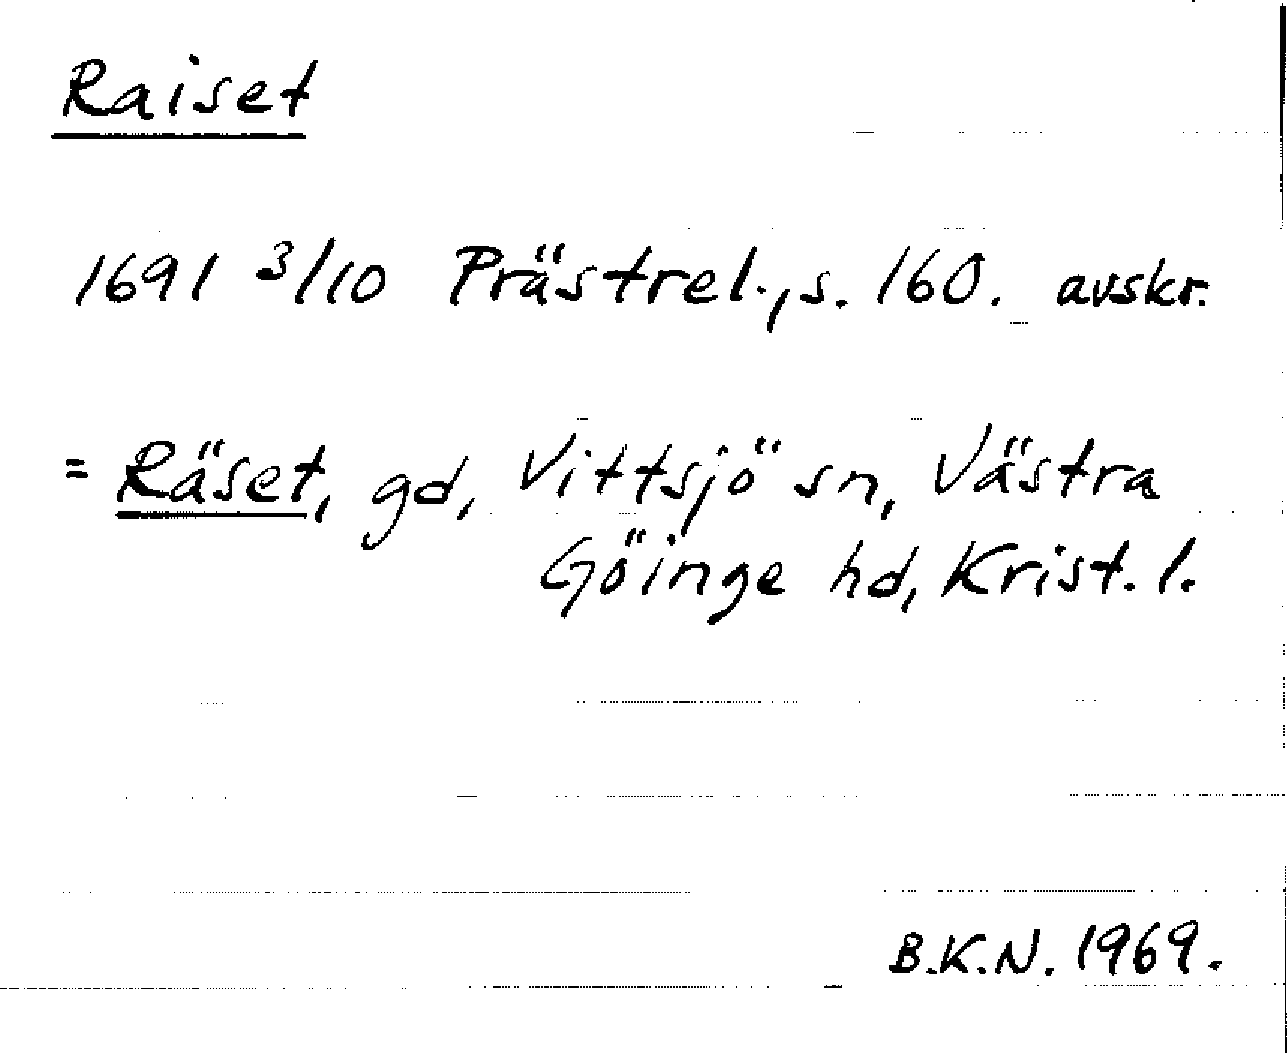 Raiset
1691 3/10 Prästrel., s. 160. avskr.
= Räset, gd, Vittsjö sn, Västra
Göinge hd, Krist. l.
B.K.N. 1969.